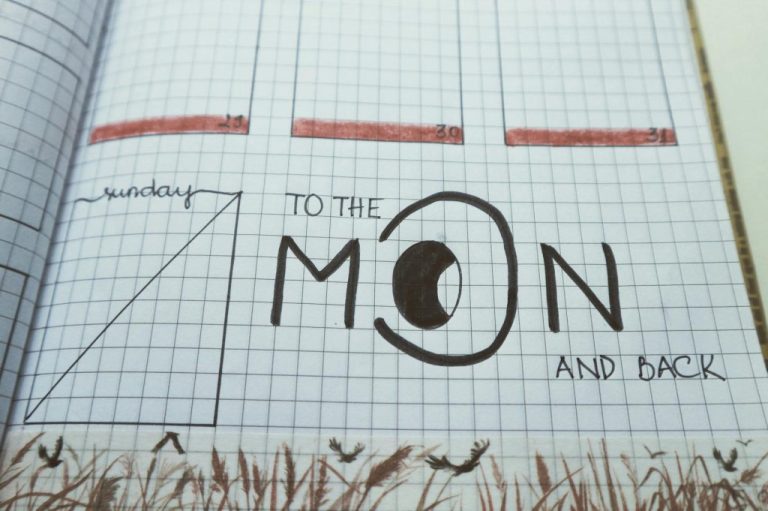 29 30 31
sunday
TO THE
MOON
AND BACK